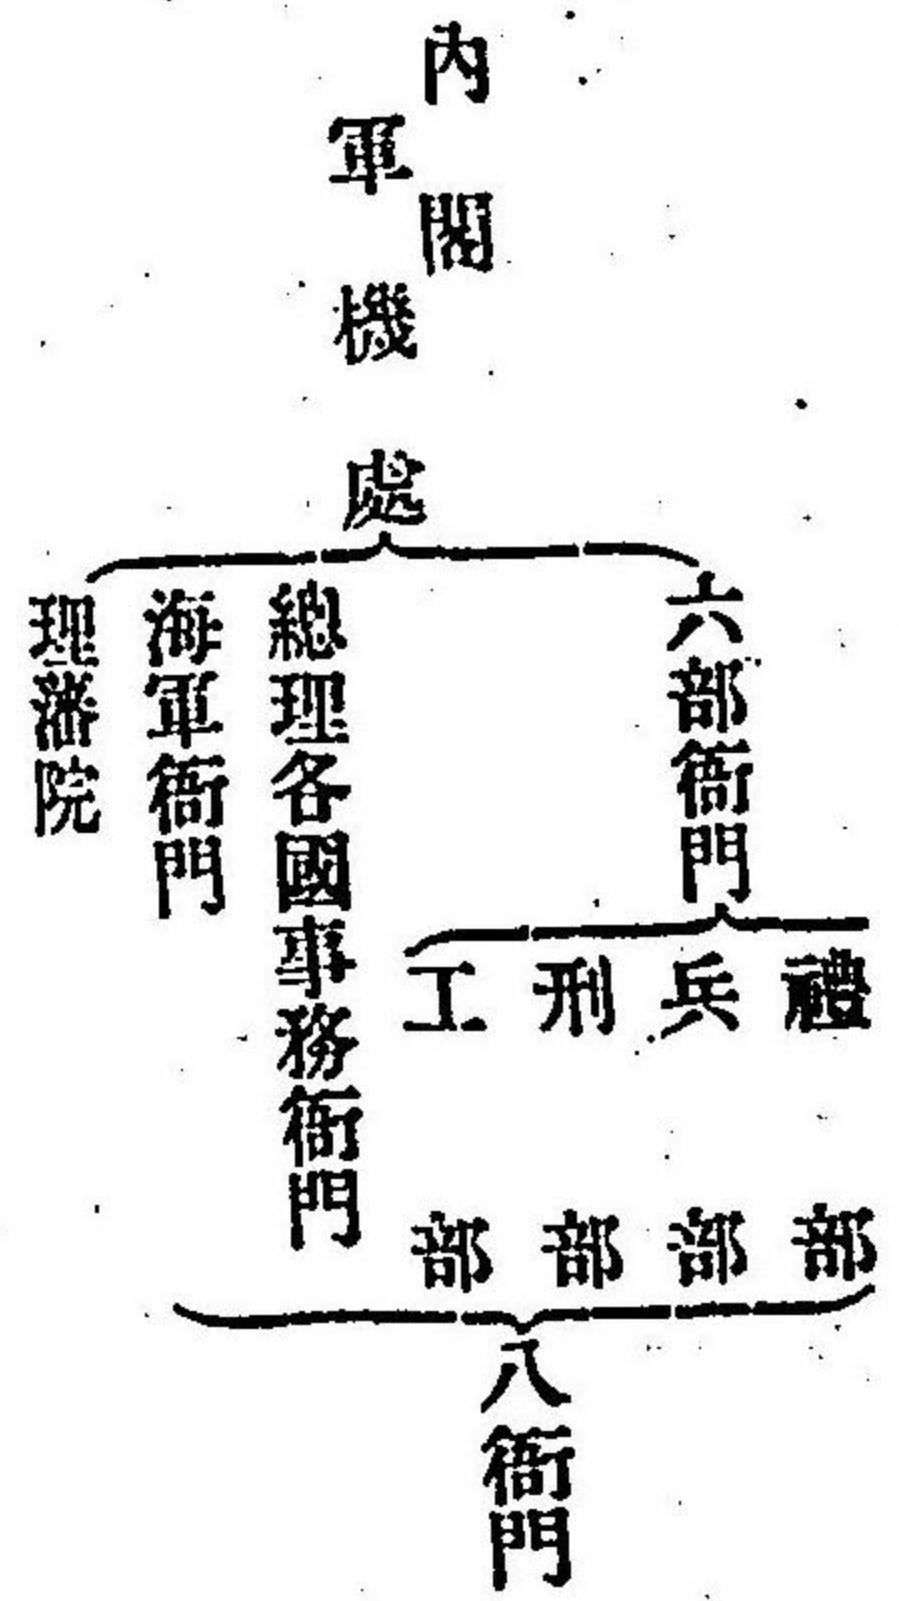 內閣
軍機處
六部衙門
禮部
兵部
刑部
工部
總理各國事務衙門
海軍衙門
理藩院
八衙門